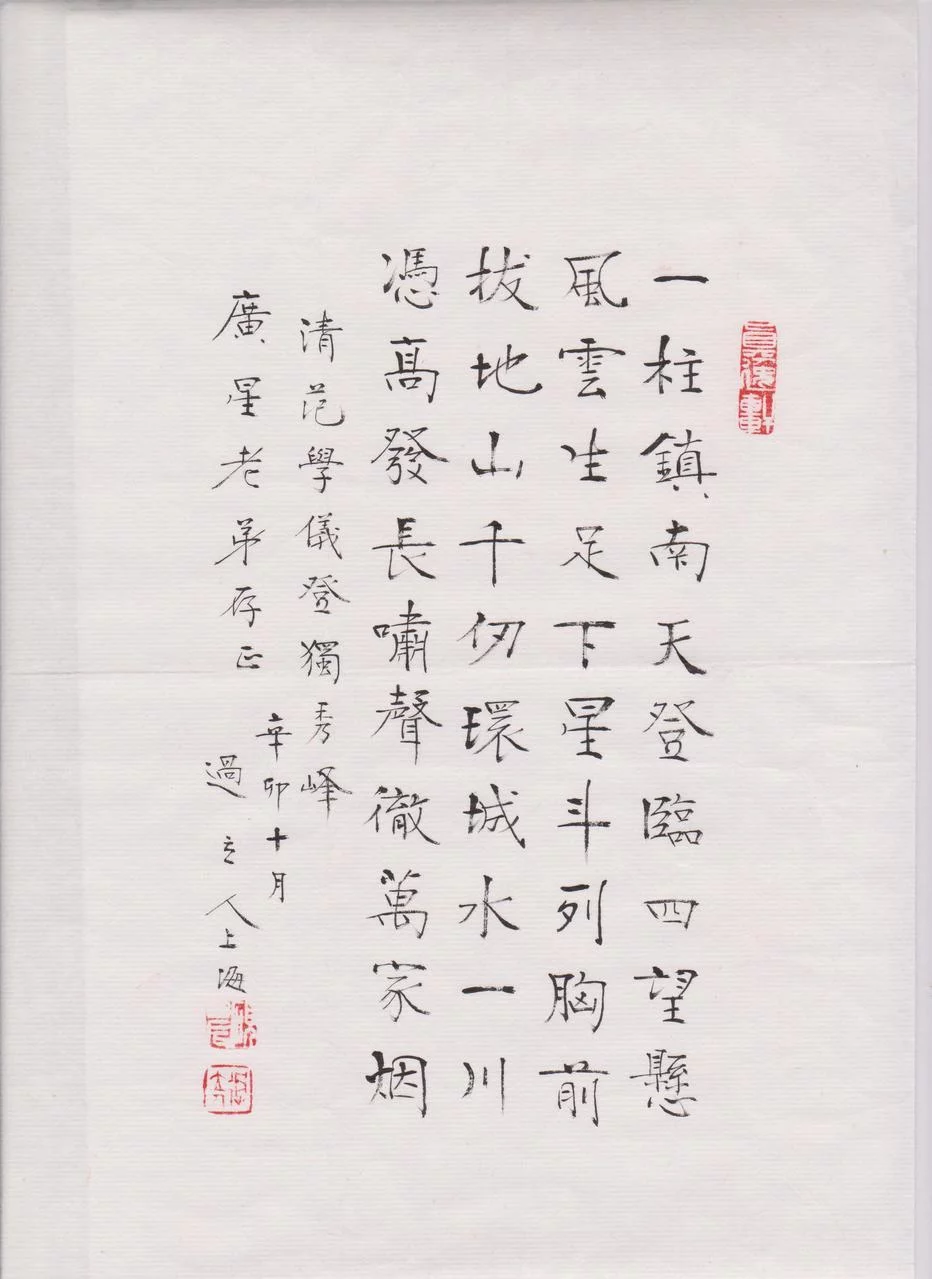 一柱鎮南天登臨四望懸
風雲生足下星斗列胸前
拔地山千仞環城水一川
憑高發長嘯聲徹萬家烟
清范學儀登獨秀峰
廣星老弟存正
辛卯十月
過立人上海